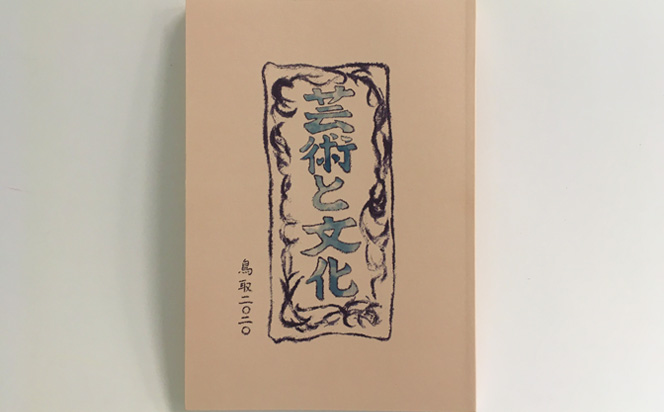 芸術と文化
鳥取二〇二〇